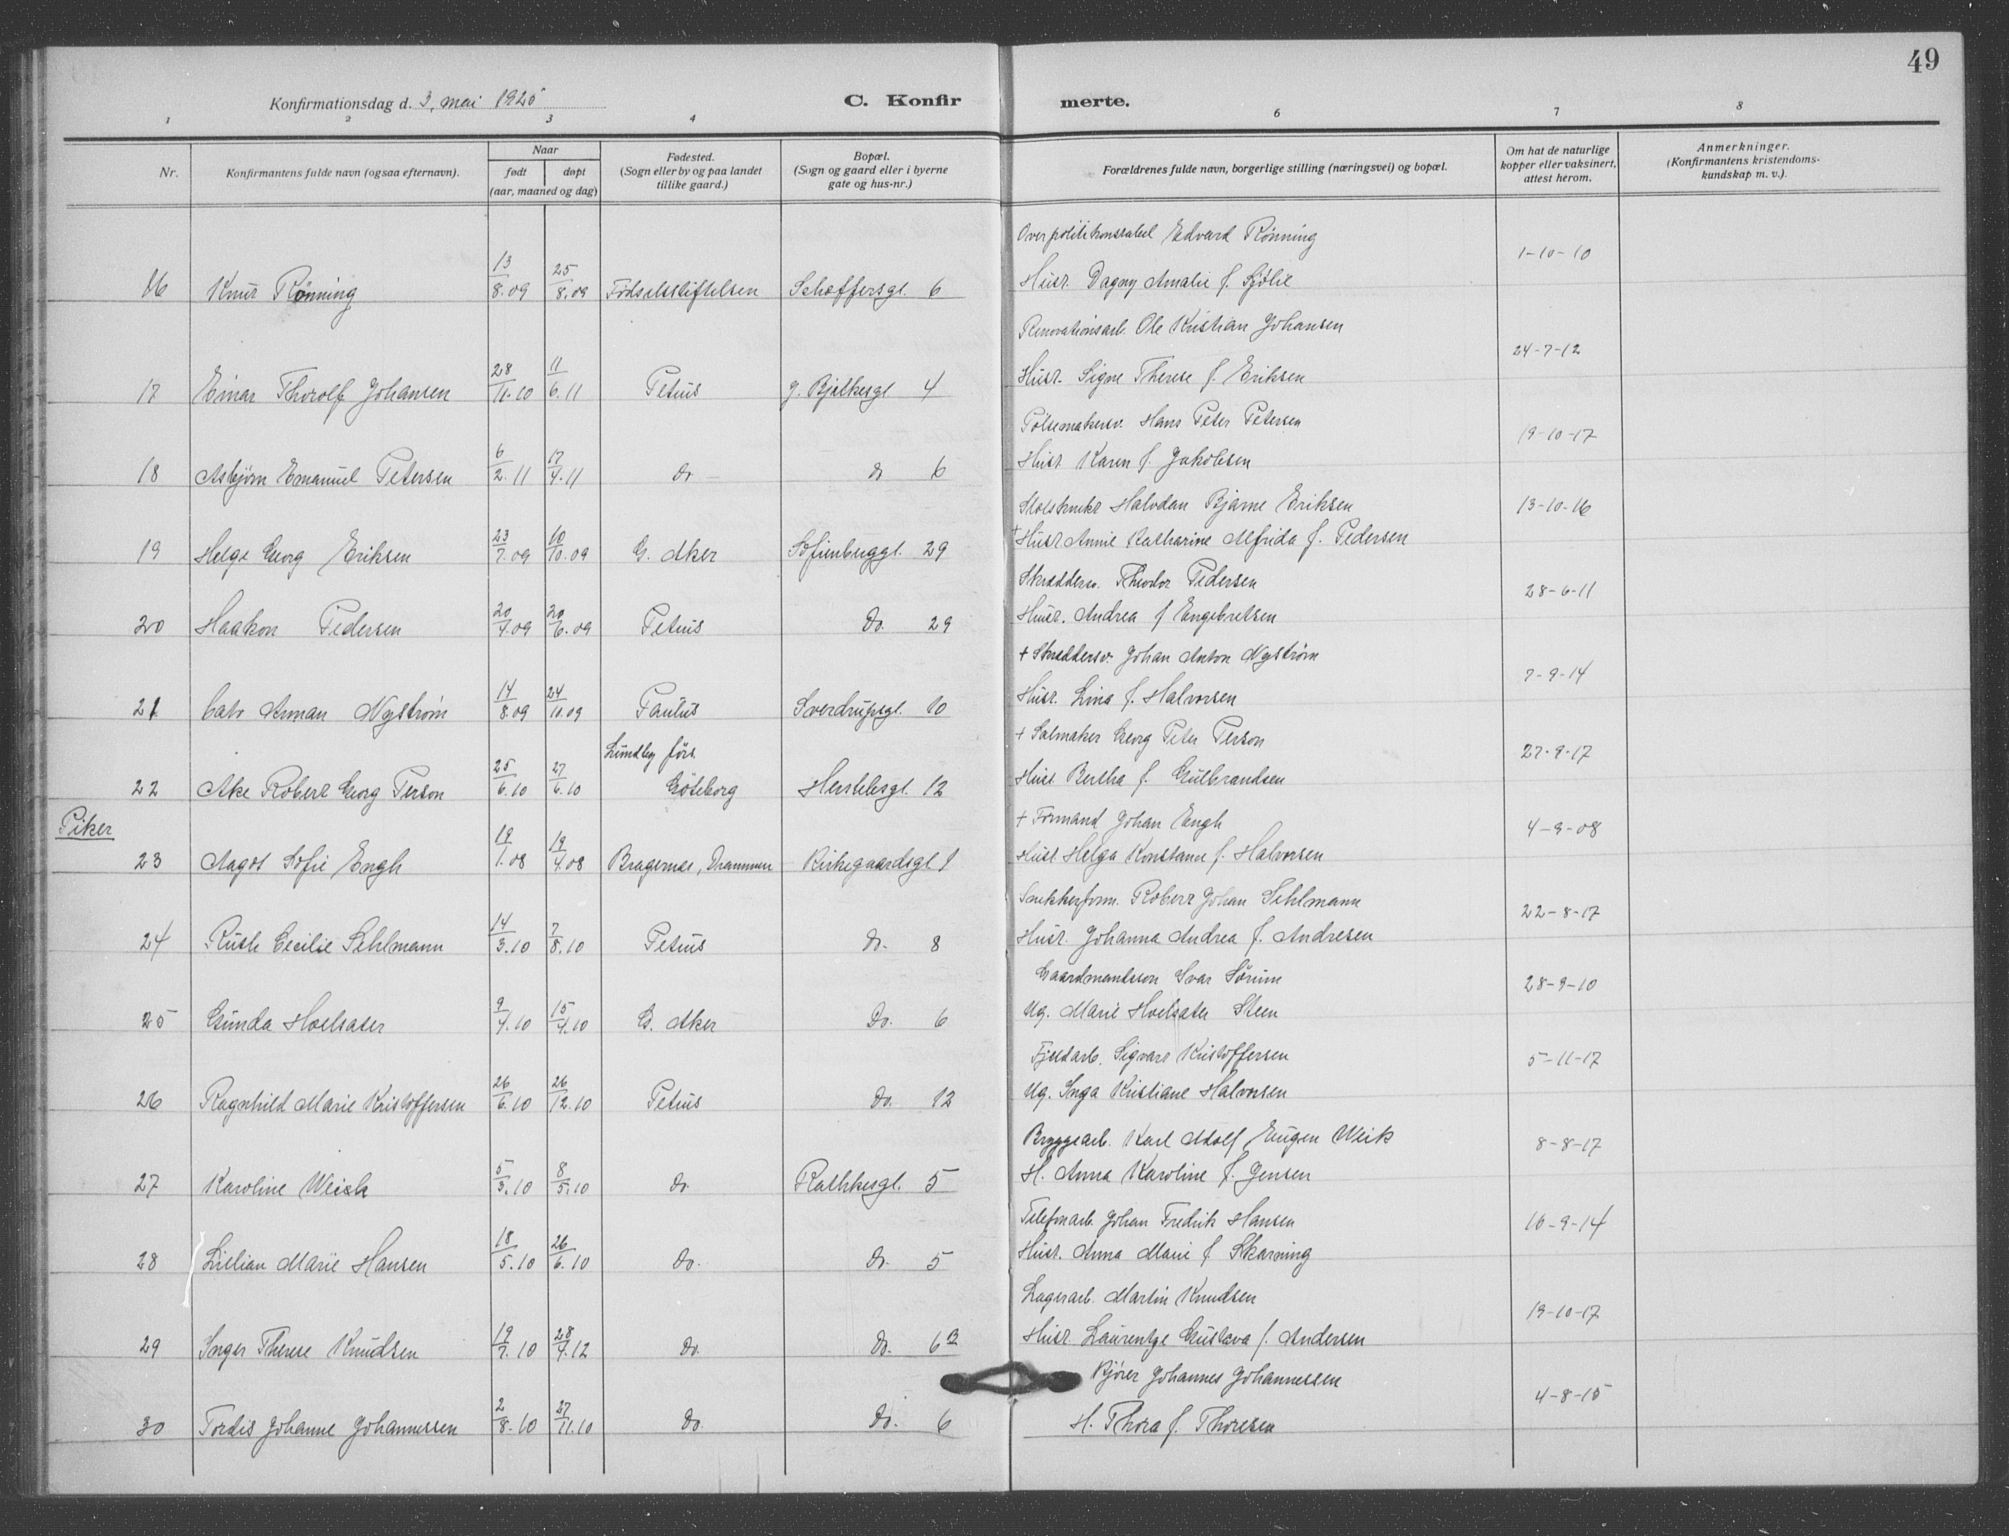 49
Konfirmationsdag d. 3. mai 1925
C. Konfir merte.
1 2 3 4 6 7 8
Nr.
Konfirmantens fulde navn (ogsaa efternavn).
Naar
født døpt
(aar, maaned og dag)
Fødested.
(Sogn eller by og paa landet
tillike gaard.)
Bopæl.
(Sogn og gaard eller i byerne
gate og hus-nr.)
Forældrenes fulde navn, borgerlige stilling (næringsvei) og bopæl.
Om hat de naturlige
kopper eller vaksinert,
attest herom.
Anmerkninger.
(Konfirmantens kristendoms-
kundskap m. v.).
Overpolitikonstabel Edvard Rönning
16 Knut Rönning 13/8.09 25/8.09 Fødselsstiftelsen Schæffersgt. 6 Hust. Dagny Amalie f. Sjölie 1-10-10
Renovationsarb. Ole Kristian Johansen
17 Einar Thorolf Johansen 28/11.10 11/6.11 Petrus g. Bjelkesgt 4 Hust. Signe Therese f. Eriksen 24-7-12
Pølsemakersv. Hans Peter Petersen
18 Asbjørn Emanuel Petersen 6/2.11 17/4.11 do do 6 Hust Karen f. Jakobsen 19-10-17
Halvdan Bjarne Eriksen
19 Helge Georg Eriksen 23/7.09 10/10.09 G. Aker Sofienberggt. 29 + Hust Annie Katharine Alfrida f. Pedersen 13-10-16
Skræddersv. Theodor Pedersen
20 Haakon Pedersen 20/4.09 20/6.09 Petrus Do. 29 Hust. Andrea f Engebretsen 28-6-11
+ Skræddersv. Johan Anton Nystrøm
21 Cato Arman Nystrøm 14/8.09 24/10.09 Paulus Sverdrupsgt. 10 Hust. Lina f. Halvorsen 7-9-14
+ Salmaker Georg Peter Person
22 Åke Robert Georg Person 25/6.10 27/6.10 Lundby förs. Göteborg Herslebsgt. 12 Hust Bertha f. Gulbrandsen 27-9-17
Piker
+ Formand Johan Engh
23 Aagot Sofie Engh 19/1.08 19/4.08 Bragernæs, Drammen Kirkegaardsgt 1 Hust Helga Konstance f. Halvorsen 4-9-08
Snekkerform. Robert Johan Sehlmann
24 Ruth Cecilie Sehlmann 14/3.10 7/8.10 Petrus do. 8 Hust. Johanna Andrea f. Andresen 22-8-17
Gaardmandssøn Ivar Sørum
25 Gunda Hoelsæter 9/4.10 15/4.10 G. Aker Do. 6 Ug. Marie Hoelsæter Steen 28-9-10
Fjeldarb. Sigvart Kristoffersen
26 Ragnhild Marie Kristoffersen 26/6.10 26/12.10 Petrus Do. 12 Ug. Inga Kristiane Halvorsen 5-11-17
Bryggearb. Karl Adolf Eugen Weik
27 Karoline Weick 5/3.10 8/5.10 do Rathkesgt. 5 H. Anna Karoline f. Jensen 8-8-17
Telefonarb. Johan Fredrik Hansen
28 Lillian Marie Hansen 18/5.10 26/6.10 do. do. 5 Hust. Anna Marie f. Skarning 16-9-14
Lagerarb. Martin Knudsen
29 Inger Therese Knudsen 19/7.10 28/4.12 do. Do. 6B Hust. Laurentze Gustava f. Andersen 19-10-17
Kjører Johannes Johannessen
30 Tordis Johanne Johannessen 2/8.10 27/11.10 do. Do. 6 H. Thora f. Thoresen 4-8-15